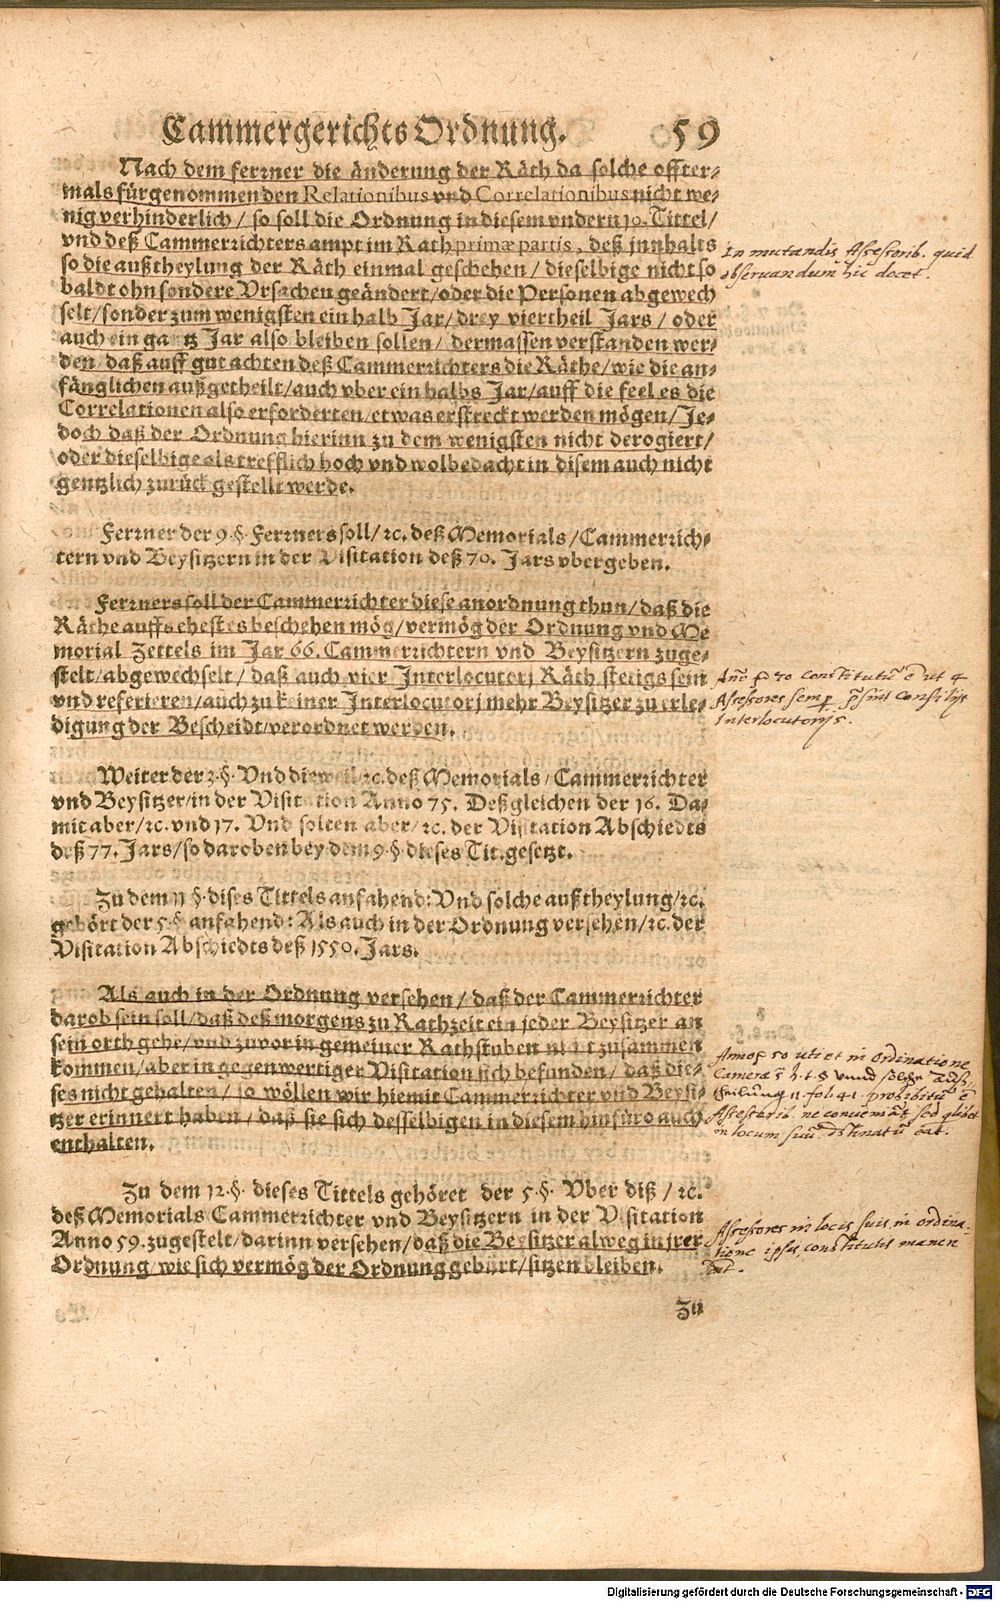 Cammergerichts Ordnung. 59
Nach dem ferrner die änderung der Räth da solche offter-
mals fürgenommen den Relationibus vnd Correlationibus nicht we-
nig verhinderlich / so soll die Ordnung in diesem vndern 10. Tittel /
vnd deß Cammerrichters ampt im Rath primæ partis, deß jnnhalts
so die außtheylung der Räth einmal geschehen / dieselbige nicht so
baldt ohn sondere Vrsachen geändert / oder die Personen abgewech
selt / sonder zum wenigsten ein halb Jar / drey viertheil Jars / oder
auch ein gantz Jar also bleiben sollen / dermassen verstanden wer-
den / daß auff gut achten deß Cammerrichters die Räthe / wie die an-
fänglichen außgetheilt / auch vber ein halbs Jar / auff die feel es die
Correlationen also erforderten / etwas erstreckt werden mögen / Je-
doch daß der Ordnung hierinn zu dem wenigsten nicht derogiert /
oder dieselbige als trefflich hoch vnd wolbedacht in disem auch nicht
gentzlich zurück gestellt werde.
Ferrner der 9. §. Ferrners soll / ꝛc. deß Memorials / Cammerrich-
tern vnd Beysitzern in der Visitation deß 70. Jars vbergeben.
Ferrners soll der Cammerrichter diese anordnung thun / daß die
Räthe auffs ehestes beschehen mög / vermög der Ordnung vnd Me
morial Zettels im Jar 66. Cammerrichtern vnd Beysitzern zuge-
stelt / abgewechselt / daß auch vier Interlocutorj Räth stetigs sein
vnd referieren / auch zu keiner Interlocutorj mehr Beysitzer zu erle-
digung der Bescheidt / verordnet werden.
Weiter der 3. §. Vnd dieweil / ꝛc. deß Memorials / Cammerrichter
vnd Beysitzer / in der Visitation Anno 75. Deßgleichen der 16. Da-
mit aber / ꝛc. vnd 17. Vnd solten aber / ꝛc. der Visitation Abschiedts
deß 77. Jars / so daroben bey dem 9. §. dieses Tit. gesetzt.
Zu dem 11 §. dises Tittels anfahend: Vnd solche außtheylung / ꝛc.
gehört der 5. §. anfahend: Als auch in der Ordnung versehen / ꝛc. der
Visitation Abschiedts deß 1550. Jars.
Als auch in der Ordnung versehen / daß der Cammerrichter
darob sein soll / daß deß morgens zu Rathzeit ein jeder Beysitzer an
sein orth gehe / vnd zuvor in gemeiner Rathstuben nicht zusammen
kommen / aber in gegenwertiger Visitation sich befunden / daß die-
ses nicht gehalten / so wöllen wir hiemit Cammerrichter vnd Beysi-
tzer erinnert haben / daß sie sich desselbigen in diesem hinfüro auch
enthalten.
Zu dem 12. §. dieses Tittels gehöret der 5. §. Vber diß / ꝛc.
deß Memorials Cammerrichter vnd Beysitzern in der Visitation
Anno 59. zugestelt / darinn versehen / daß die Beysitzer alweg in jrer
Ordnung / wie sich vermög der Ordnung gebürt / sitzen bleiben.
Zu
In mutandis Assessorib. quid
observandum hic docet.
70 constitutu ut 4
Assessores semp Consilijs
Interlocutorijs.
50 uti et in Ordinatione
Cameræ vnnd solche auß
theilung 11. fol. 41. prohibitu
Assessorib. ne conveniat sed
in locum suu destinatu eat.
Assessores in locis suis in ordina-
tione ipsis constitutis manen
Digitalisierung gefördert durch die Deutsche Forschungsgemeinschaft - DFG